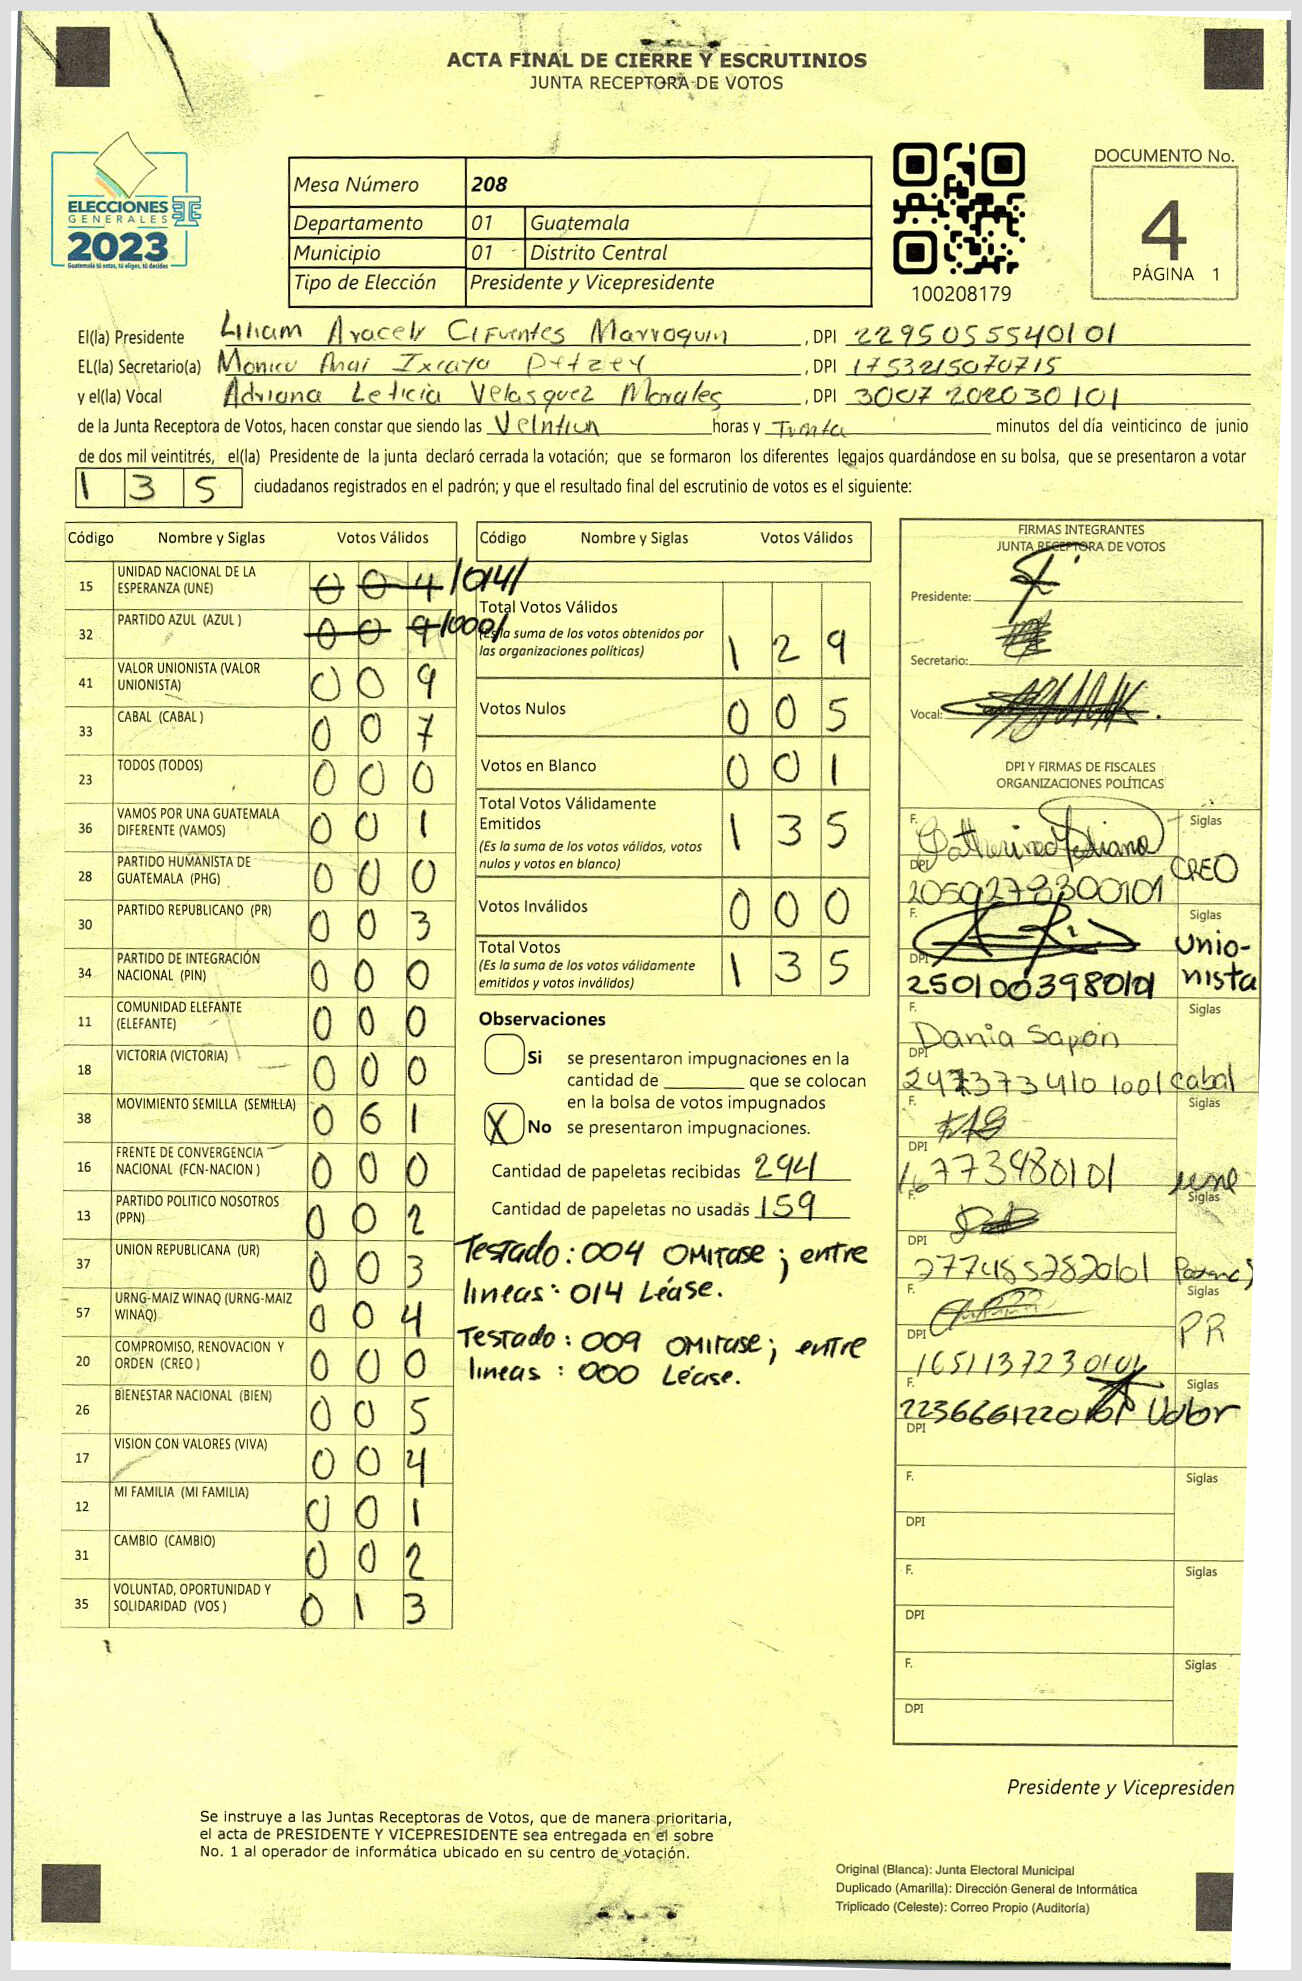 ACTA FINAL DE CIERRE Y ESCRUTINIOS
JUNTA RECEPTORA DE VOTOS
ELECCIONES
GENERALES
2023
Guatemala tú votas, tú eliges, tú decides
Mesa Número 208
Departamento 01 Guatemala
Municipio 01 Distrito Central
Tipo de Elección Presidente y Vicepresidente
100208179
DOCUMENTO No.
4
PÁGINA 1
El(la) Presidente Liliam Aracely Cifuentes Marroquin , DPI 2295055540101
EL(la) Secretario(a) Monica Anai Ixcayo , DPI 1753215070715
y el(la) Vocal Adriana Leticia Velasquez Morales , DPI 3007202030101
de la Junta Receptora de Votos, hacen constar que siendo las Veintiun horas y Treinta minutos del día veinticinco de junio
de dos mil veintitrés, el(la) Presidente de la junta declaró cerrada la votación; que se formaron los diferentes legajos quardándose en su bolsa, que se presentaron a votar
1 3 5 ciudadanos registrados en el padrón; y que el resultado final del escrutinio de votos es el siguiente:
Código Nombre y Siglas Votos Válidos
15 UNIDAD NACIONAL DE LA ESPERANZA (UNE) 0 0 4 /014/
32 PARTIDO AZUL (AZUL ) 0 0 9 /000/
41 VALOR UNIONISTA (VALOR UNIONISTA) 0 0 9
33 CABAL (CABAL ) 0 0 7
23 TODOS (TODOS) 0 0 0
36 VAMOS POR UNA GUATEMALA DIFERENTE (VAMOS) 0 0 1
28 PARTIDO HUMANISTA DE GUATEMALA (PHG) 0 0 0
30 PARTIDO REPUBLICANO (PR) 0 0 3
34 PARTIDO DE INTEGRACIÓN NACIONAL (PIN) 0 0 0
11 COMUNIDAD ELEFANTE (ELEFANTE) 0 0 0
18 VICTORIA (VICTORIA) 0 0 0
38 MOVIMIENTO SEMILLA (SEMILLA) 0 6 1
16 FRENTE DE CONVERGENCIA NACIONAL (FCN-NACION ) 0 0 0
13 PARTIDO POLITICO NOSOTROS (PPN) 0 0 2
37 UNION REPUBLICANA (UR) 0 0 3
57 URNG-MAIZ WINAQ (URNG-MAIZ WINAQ) 0 0 4
20 COMPROMISO, RENOVACION Y ORDEN (CREO ) 0 0 0
26 BIENESTAR NACIONAL (BIEN) 0 0 5
17 VISION CON VALORES (VIVA) 0 0 4
12 MI FAMILIA (MI FAMILIA) 0 0 1
31 CAMBIO (CAMBIO) 0 0 2
35 VOLUNTAD, OPORTUNIDAD Y SOLIDARIDAD (VOS ) 0 1 3
Código Nombre y Siglas Votos Válidos
Total Votos Válidos
(Es la suma de los votos obtenidos por
las organizaciones políticas) 1 2 9
Votos Nulos 0 0 5
Votos en Blanco 0 0 1
Total Votos Válidamente
Emitidos 1 3 5
(Es la suma de los votos válidos, votos
nulos y votos en blanco)
Votos Inválidos 0 0 0
Total Votos 1 3 5
(Es la suma de los votos válidamente
emitidos y votos inválidos)
Observaciones
Si se presentaron impugnaciones en la
cantidad de ________ que se colocan
en la bolsa de votos impugnados
X No se presentaron impugnaciones.
Cantidad de papeletas recibidas 294
Cantidad de papeletas no usadas 159
Testado: 004 Omitase; entre
lineas: 014 Léase.
Testado: 009 Omitase; entre
lineas: 000 Léase.
FIRMAS INTEGRANTES
JUNTA RECEPTORA DE VOTOS
Presidente:
Secretario:
Vocal:
DPI Y FIRMAS DE FISCALES
ORGANIZACIONES POLÍTICAS
F. Siglas
DPI 2059273300101 CREO
F. Siglas
DPI 2501003980101 Unio-
nista
F. Dania Sapón Siglas
DPI cabal
F. Siglas
DPI une
F. Siglas
DPI
F. Siglas
DPI PR
F. Siglas
DPI 2236661220101 Valor
F. Siglas
DPI
F. Siglas
DPI
F. Siglas
DPI
Presidente y Vicepresiden
Se instruye a las Juntas Receptoras de Votos, que de manera prioritaria,
el acta de PRESIDENTE Y VICEPRESIDENTE sea entregada en el sobre
No. 1 al operador de informática ubicado en su centro de votación.
Original (Blanca): Junta Electoral Municipal
Duplicado (Amarilla): Dirección General de Informática
Triplicado (Celeste): Correo Propio (Auditoría)